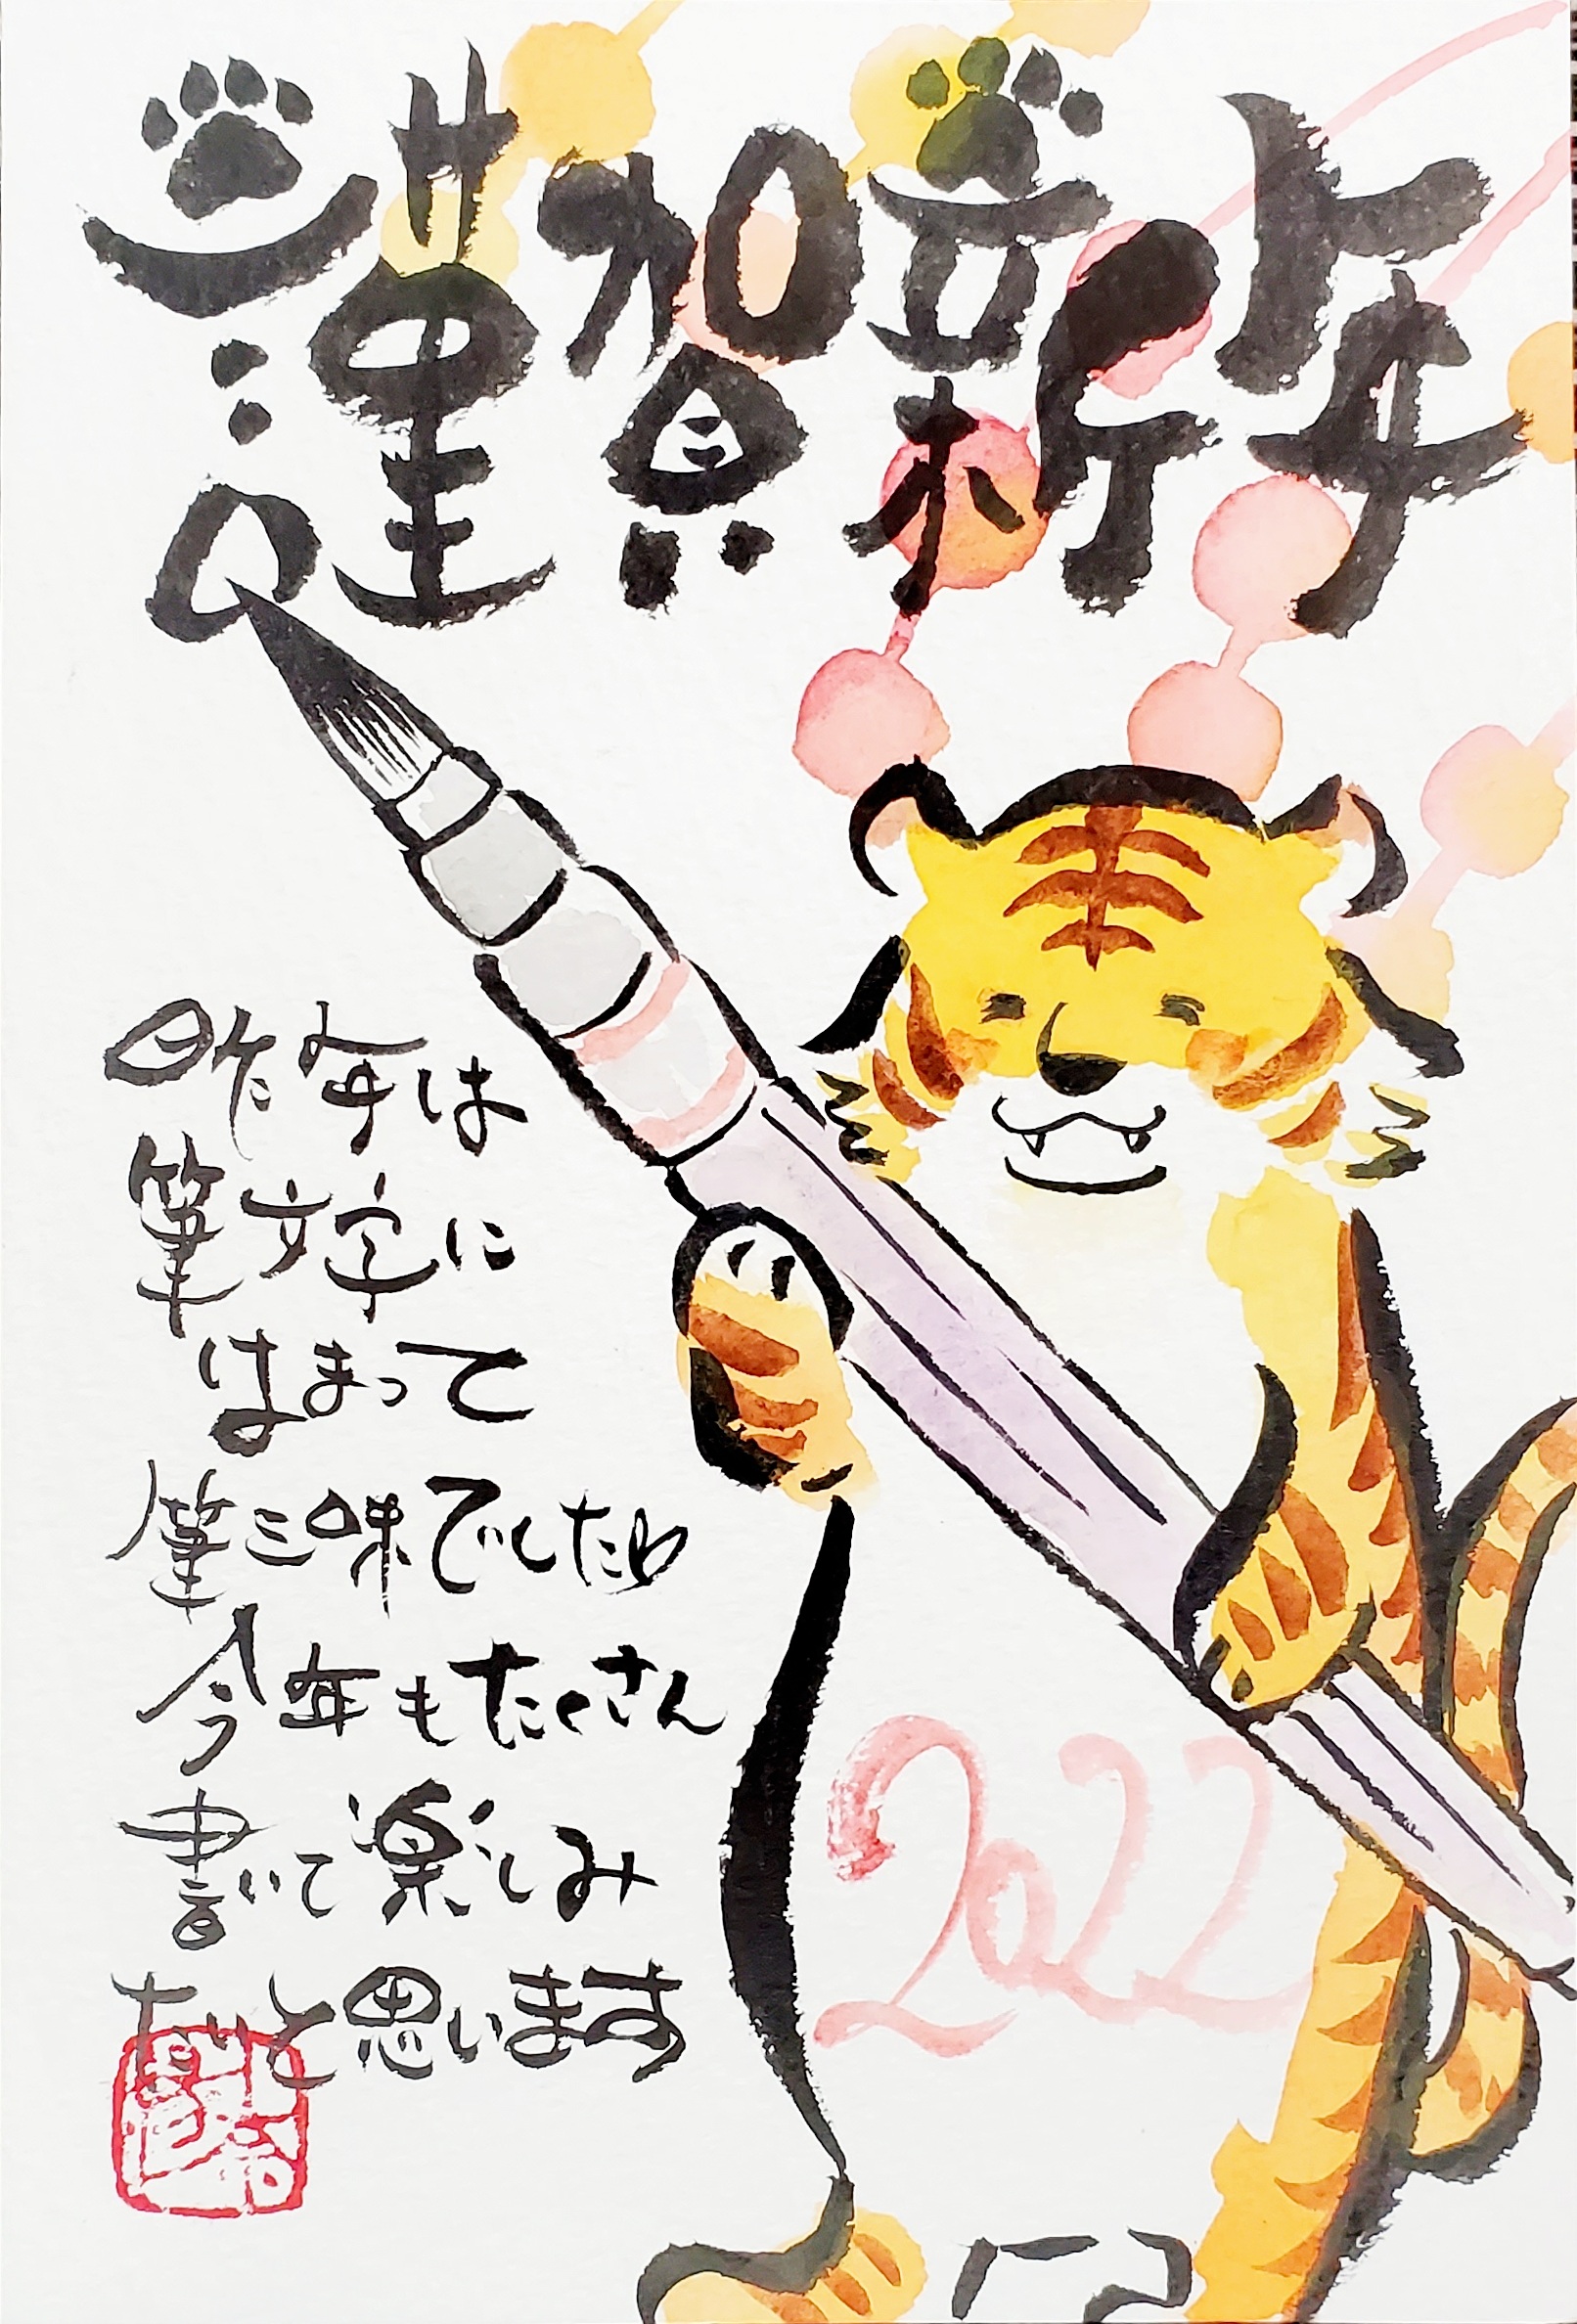 謹賀新年
昨年は
筆文字に
はまって
筆三昧でしたね
今年もたくさん
書いて楽しみ
たいと思います
2022